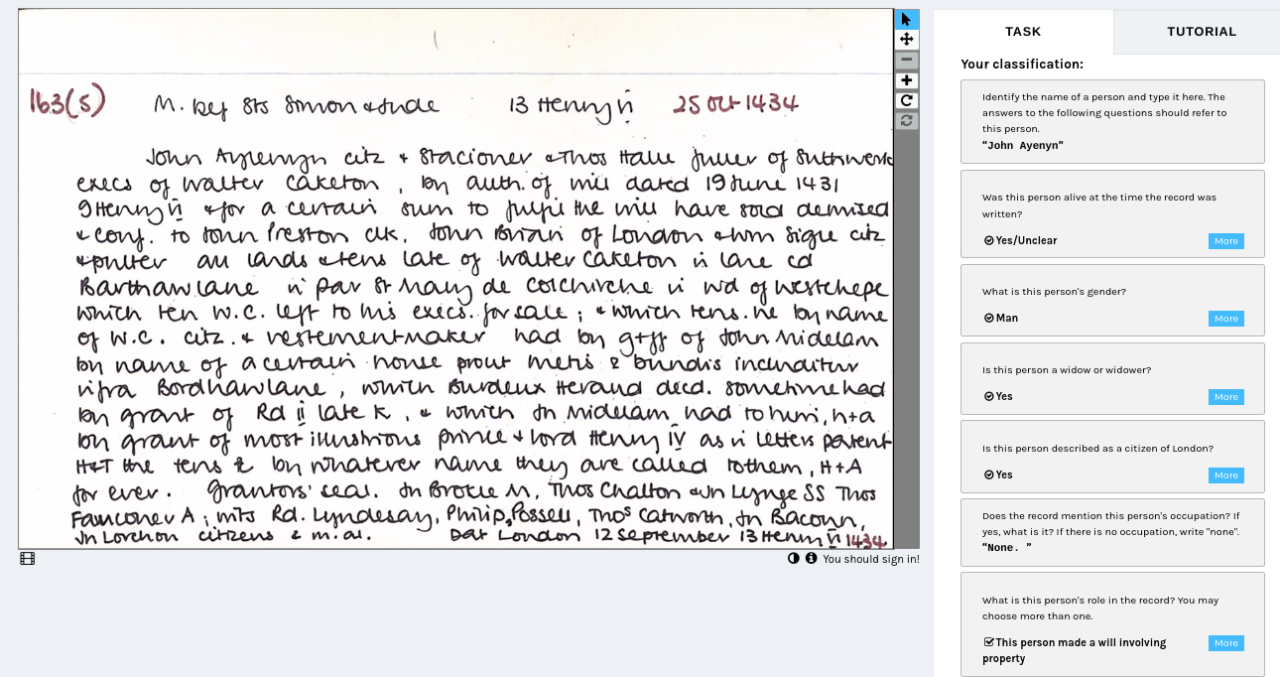 163(5) M. bef Sts Simon & Jude 13 Henry vi 25 Oct 1434
John Aylenyn citz & Stacioner & Thos Halle fuller of Suthwerk
execs of Walter Caketon, by auth. of will dated 19 June 1431
9 Henry vi & for a certain sum to fulfil the will have sold demised
& conf. to John Preston clk. John Brian of London & Wm Sigle citz
& pulter all lands & tens late of Walter Caketon in lane cd
Barthawlane in par St Mary de Colchirche in wd of Westchepe
which ten W.C. left to his execs. for sale; & which tens. he by name
of W.C. citz. & vestementmaker had by g+ff of John Midelam
by name of a certain house prout metis & bundis includitur
infra Bordhawlane, which Burdeux Heraud decd. sometime had
by grant of Rd ii late K, & which Jn Midelam had to him, h+a
by grant of most illustrious prince & lord Henry IV as in letters patent
H&T the tens & by whatever name they are called to them, H+A
for ever. Grantors' seal. Jn Brocle M, Thos Chalton & Jn Lynge SS Thos
Fauconer A; wits Rd. Lyndesay, Philip Possell, Thos Catworth, Jn Bacoun,
Jn Lorchon citizens & m. al. Dat London 12 September 13 Henry VI 1434
You should sign in!
TASK
TUTORIAL
Your classification:
Identify the name of a person and type it here. The
answers to the following questions should refer to
this person.
“John Ayenyn”
Was this person alive at the time the record was
written?
Yes/Unclear More
What is this person's gender?
Man More
Is this person a widow or widower?
Yes More
Is this person described as a citizen of London?
Yes More
Does the record mention this person's occupation? If
yes, what is it? If there is no occupation, write "none".
“None. ”
What is this person's role in the record? You may
choose more than one.
This person made a will involving More
property